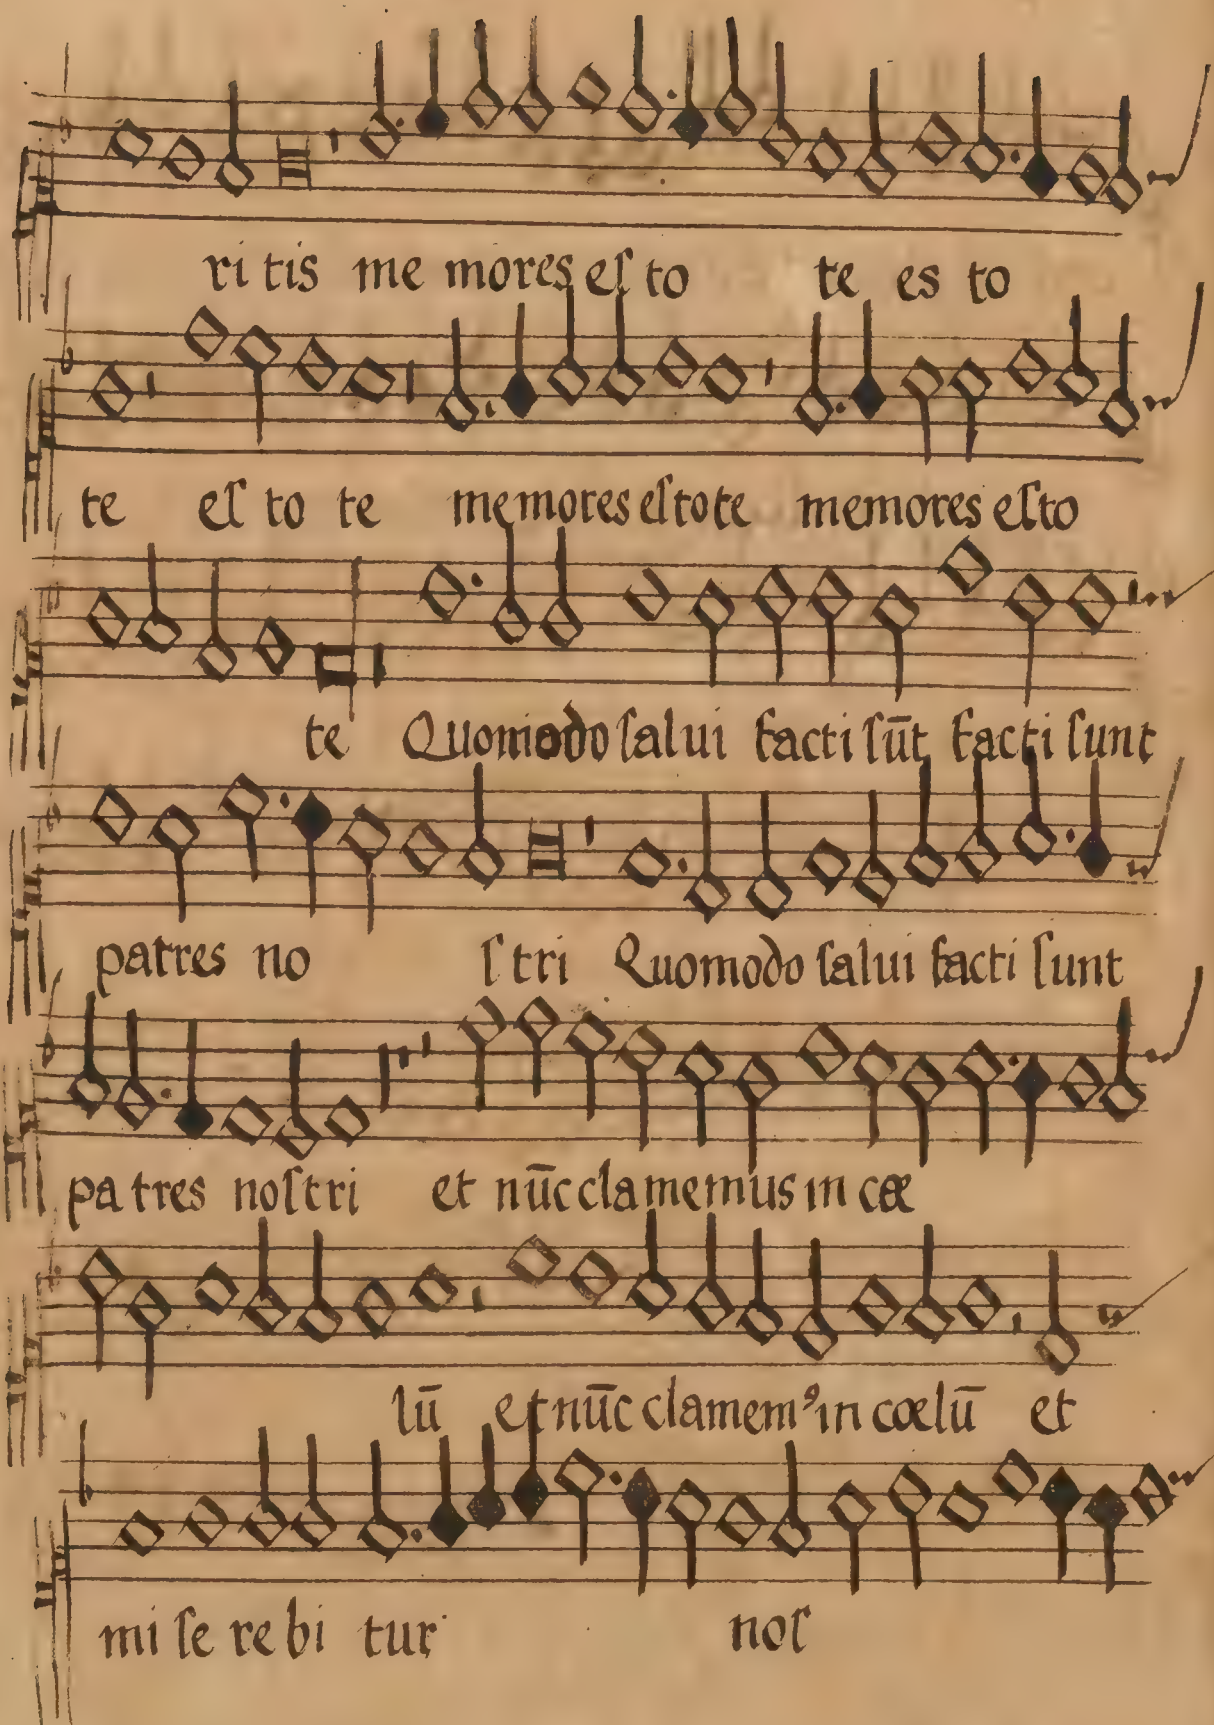 ri tis me mores eſ to te es to
te eſ to te memores eſtote memores eſto
te Quomodo ſalui facti ſūt facti ſunt
patres no ſtri Quomodo ſalui facti ſunt
pa tres noſtri et nūc clamemus in cœ
lū et nūc clamemꝰ in cœlū et
mi ſe re bi tur noſ